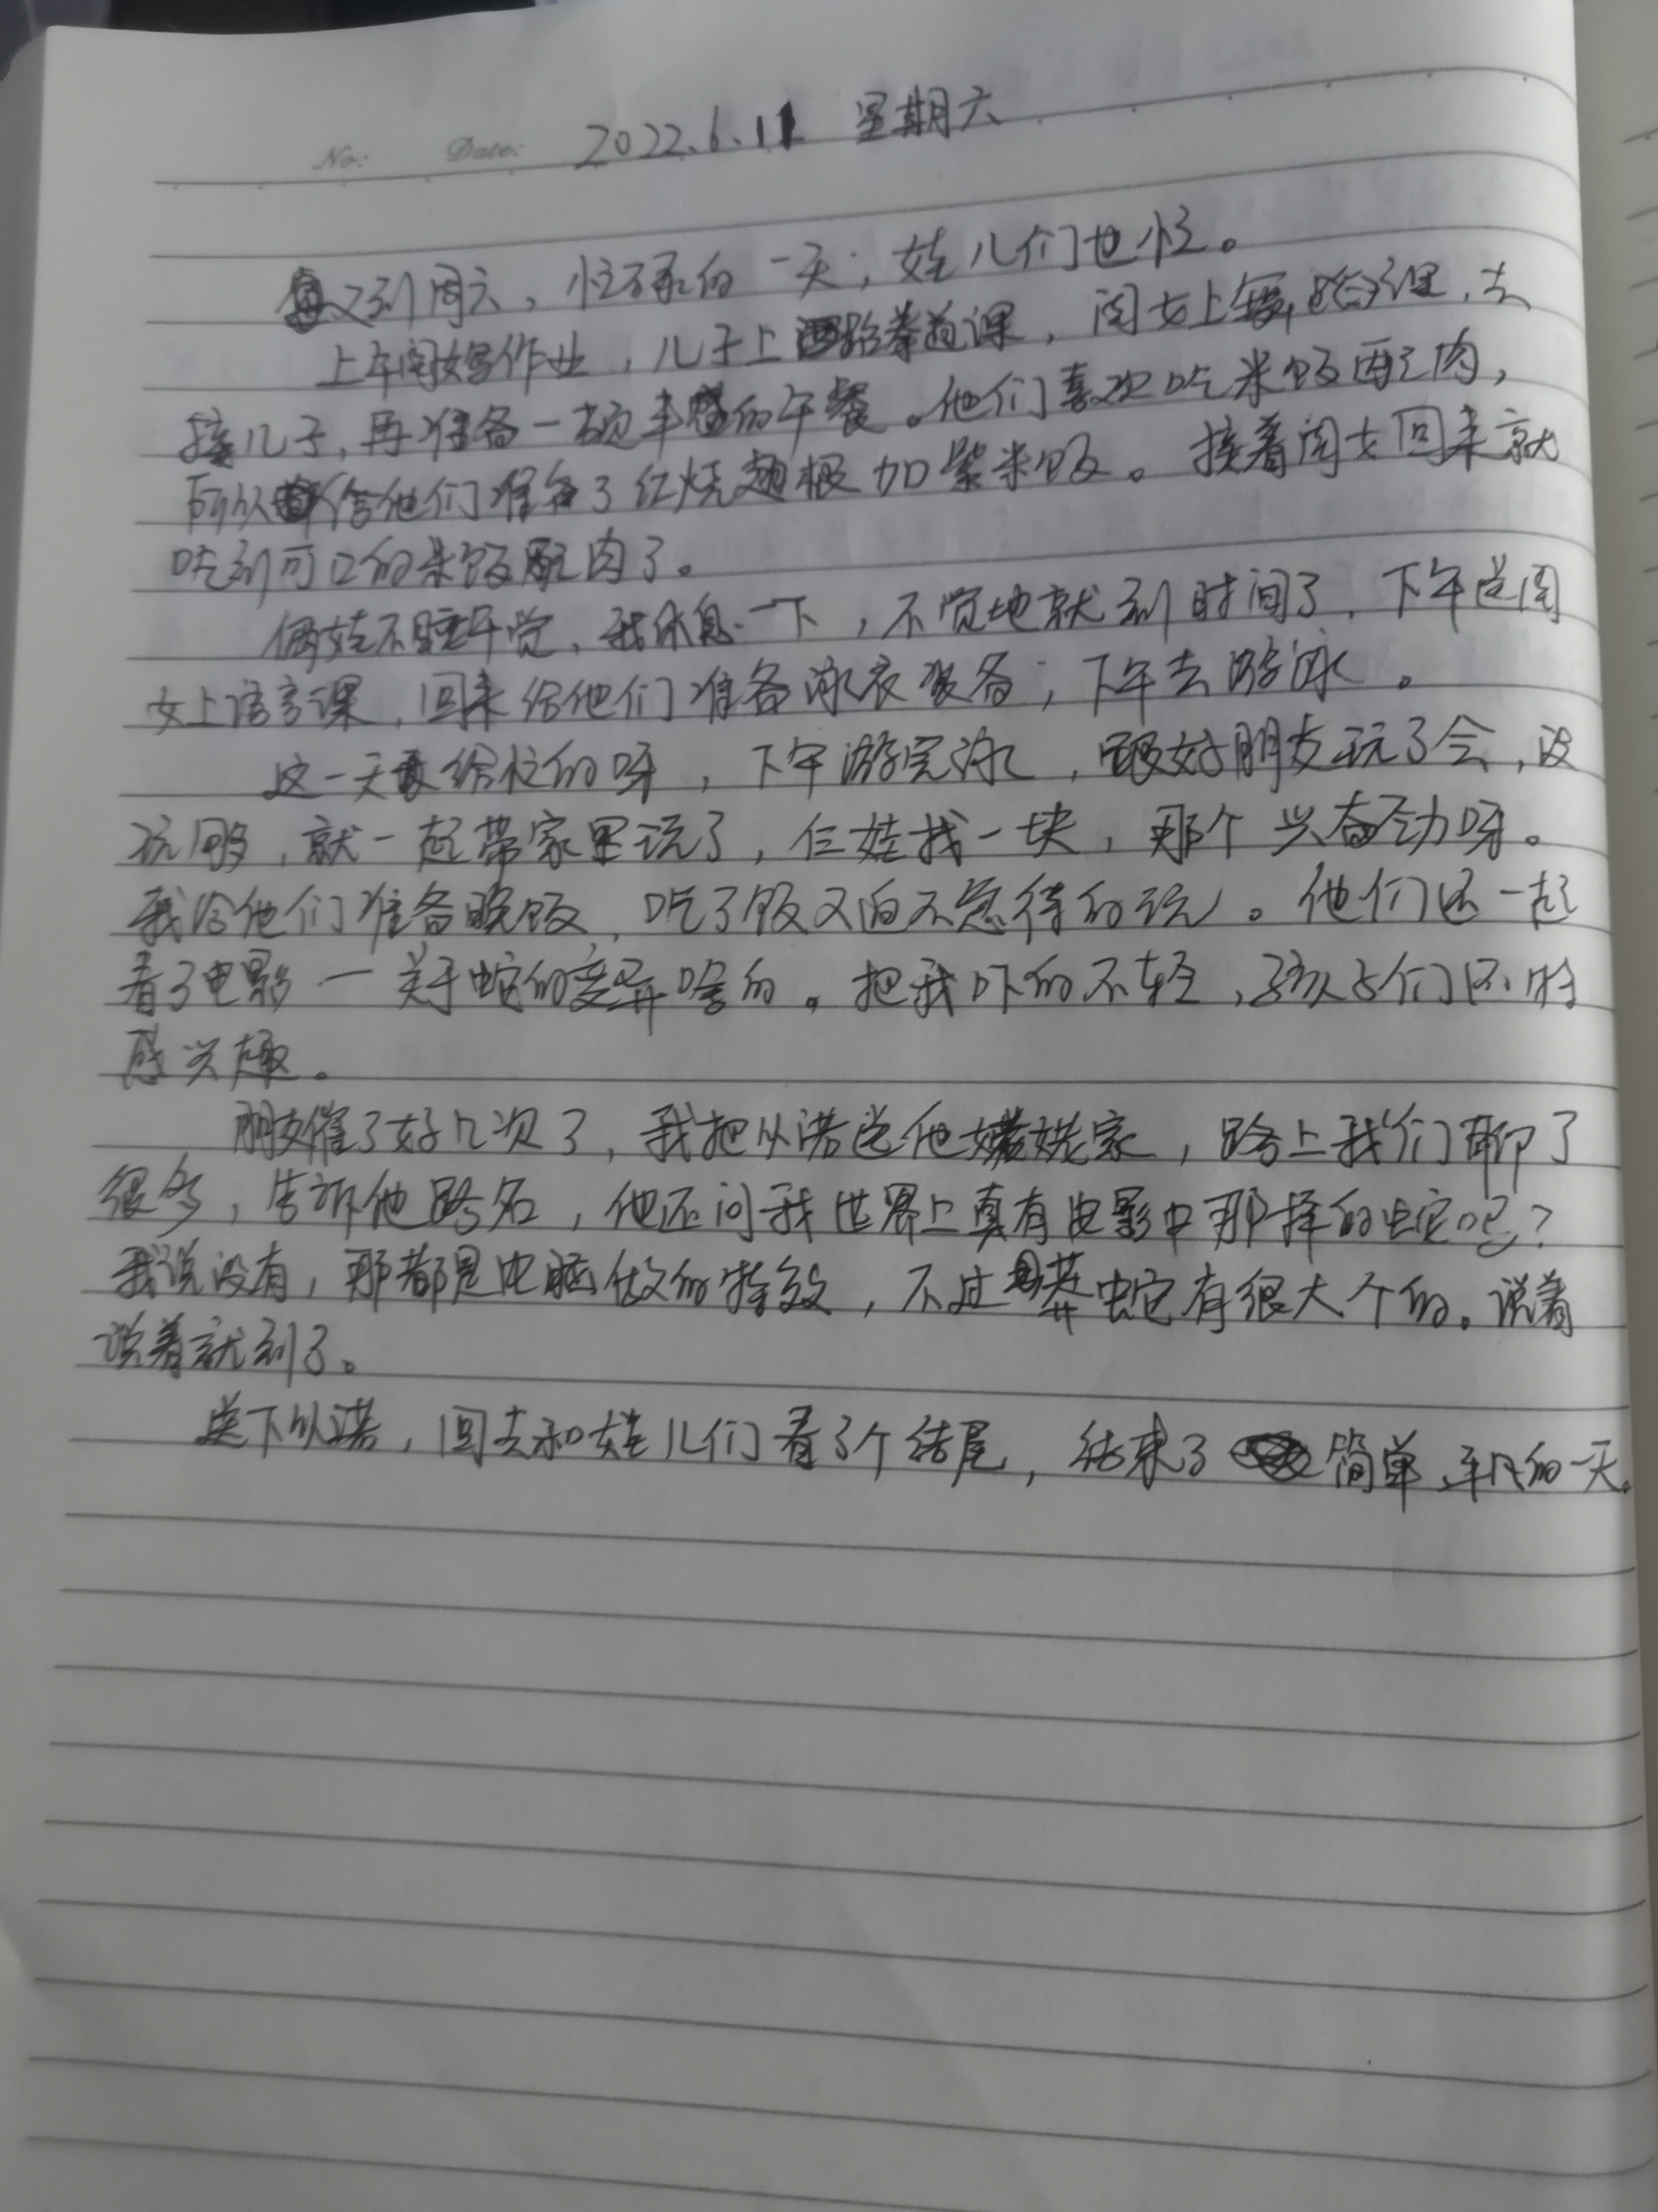 No: Date: 2022.6.11 星期六
又到周六，忙不停的一天，娃儿们也忙。
上午闺女写作业，儿子上跆拳道课，闺女上课，去
接儿子，再准备一顿丰盛的午餐。他们喜欢吃米饭配肉，
所以给他们准备了红烧翅根加紫米饭。接着闺女回来就
吃到可口的米饭配肉了。
俩娃不睡午觉，我休息一下，不觉地就到时间了，下午送闺
女上语言课，回来给他们准备泳衣装备；下午去游泳。
这一天给忙的呀，下午游完泳，跟好朋友玩了会，没
玩够，就一起带家里玩了，仨娃找一块，那个兴奋劲呀。
我给他们准备晚饭，吃了饭又迫不急待的玩。他们还一起
看了电影一关于蛇的变异啥的。把我吓的不轻，孩子们还好
感兴趣。
朋友催了好几次了，我把从诺送他姥姥家，路上我们聊了
很多，告诉他路名，他还问我世界上真有电影中那样的蛇吧？
我说没有，那都是电脑做的特效，不过蟒蛇有很大个的。说着
说着就到了。
送下从诺，回去和娃儿们看了个结尾，结束了简单、平凡的一天。